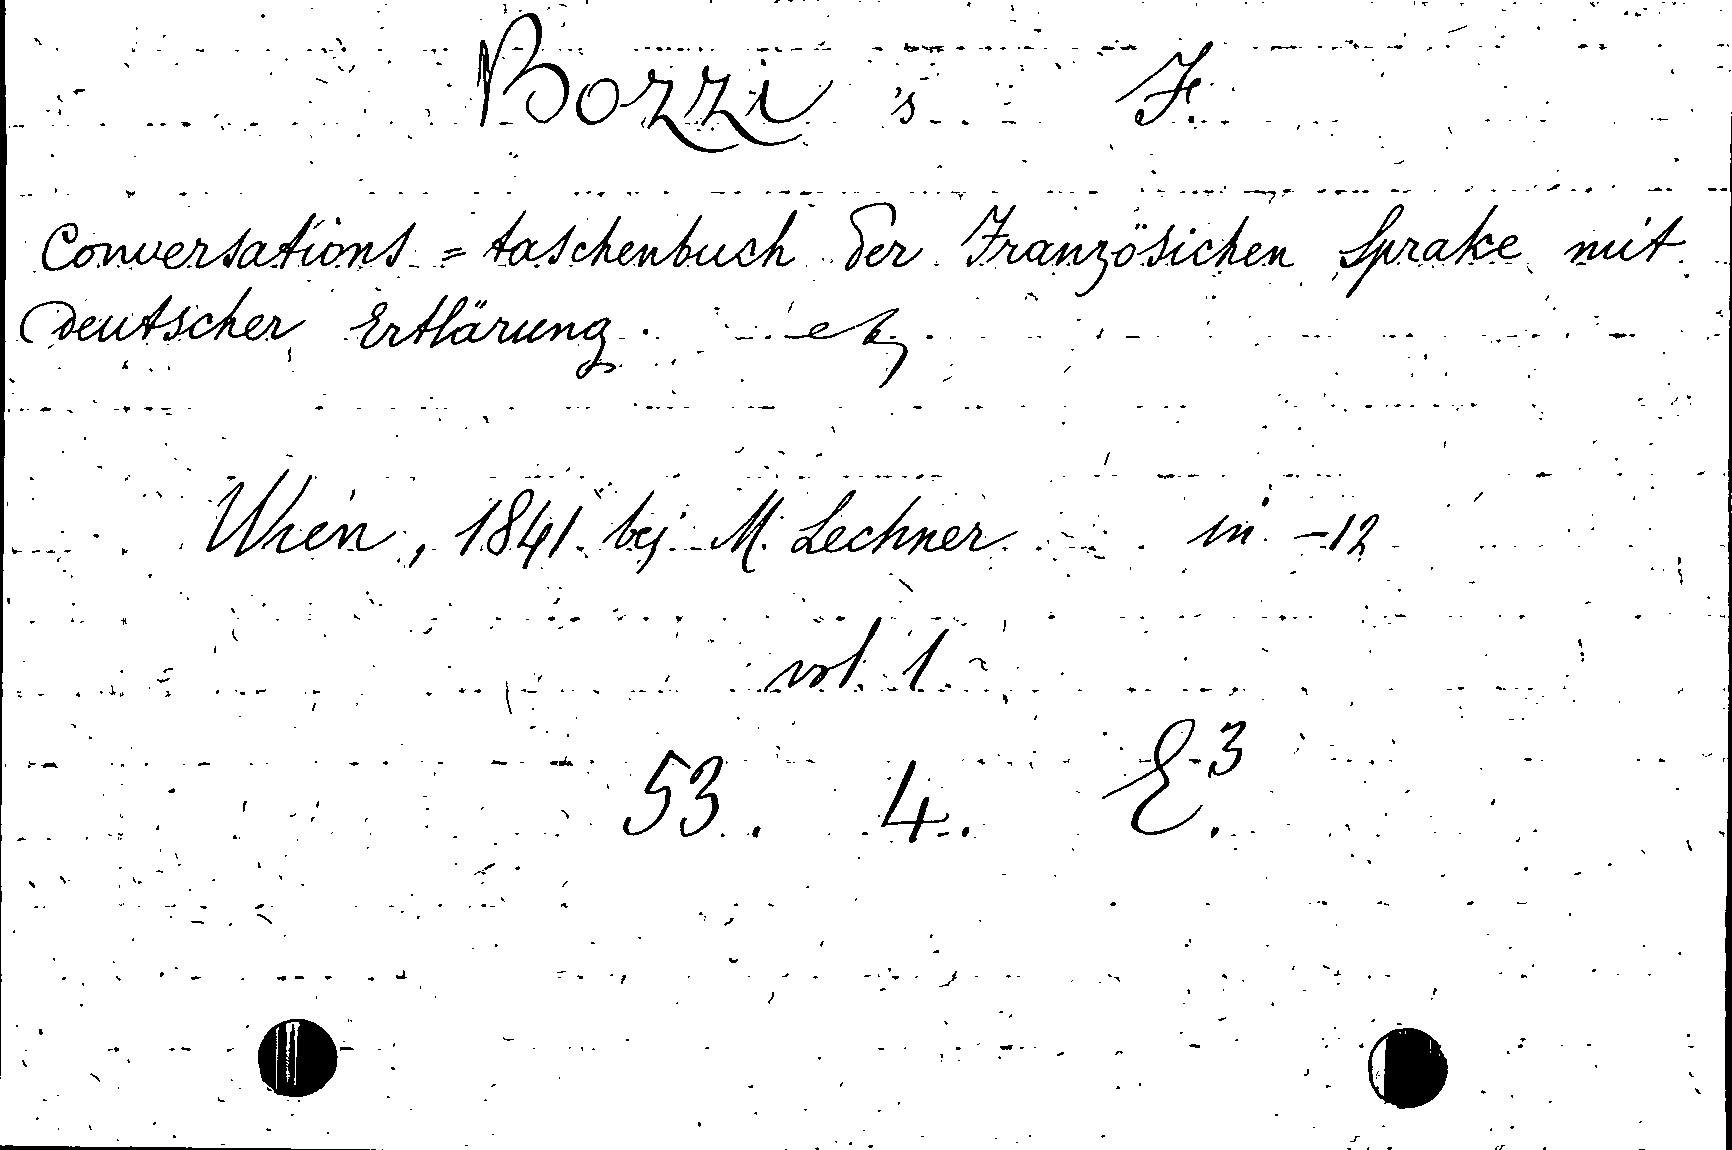 Bozzi 's F.
Conversations = taschenbuch der Französichen Sprake mit
Deutscher Ertlärung. etz.
Wien, 1841 bej M. Lechner in -12
vol. 1
53. 4. E.3